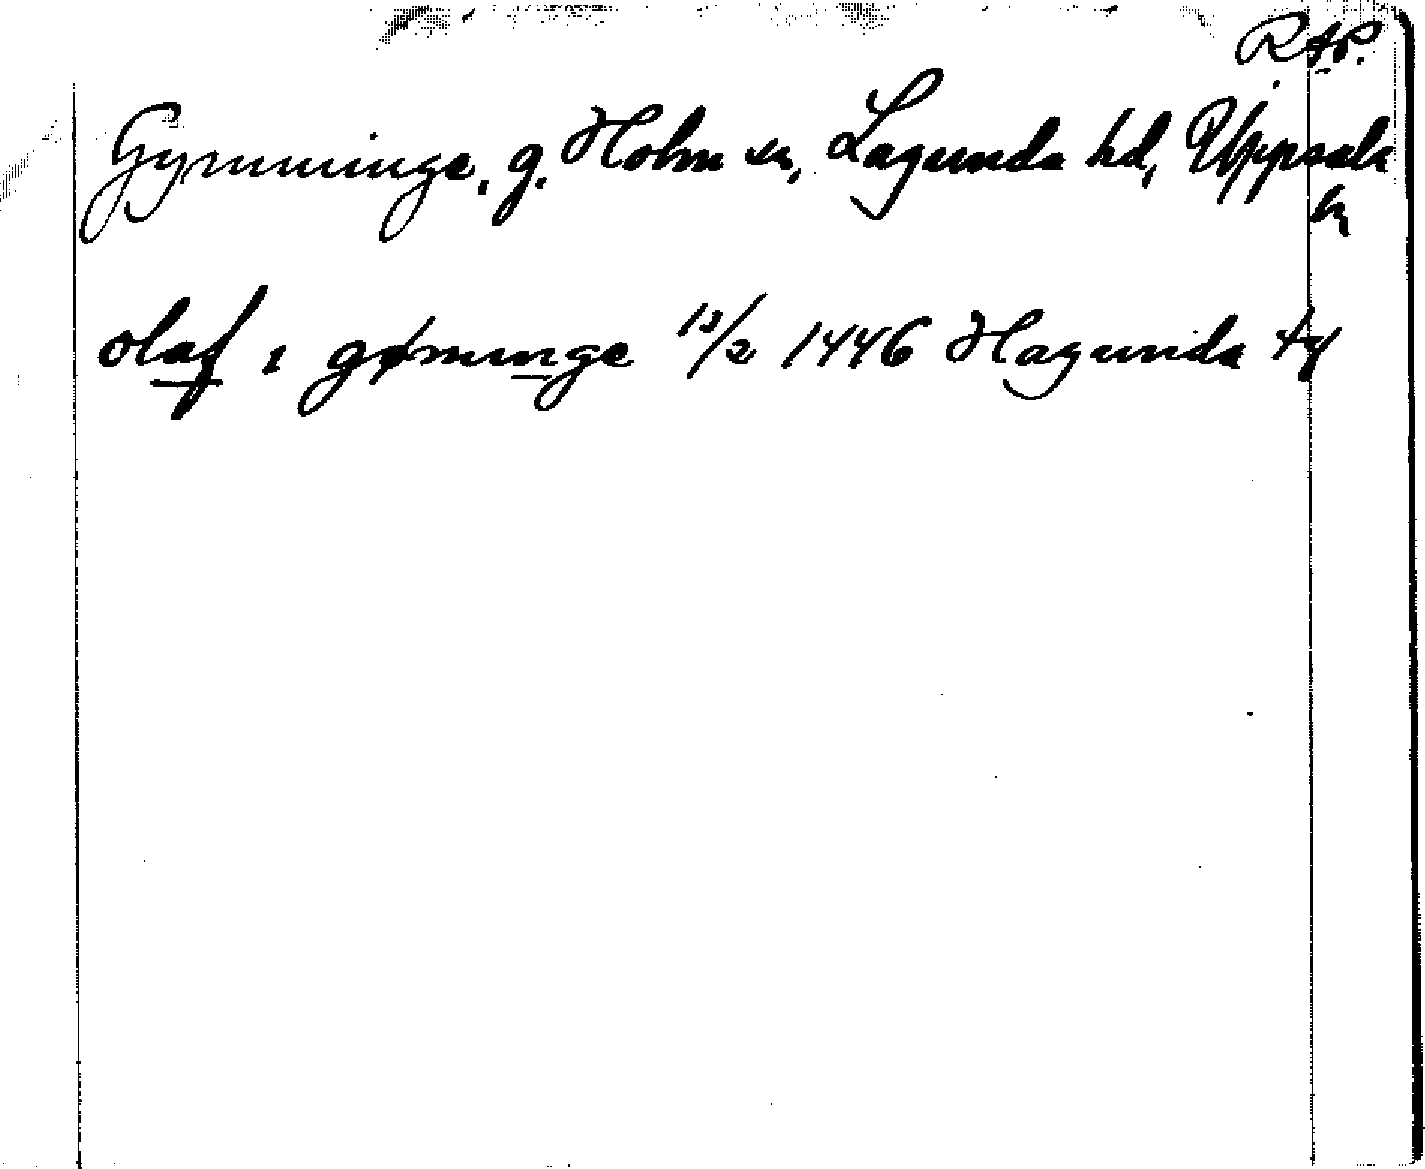 Gymminge, g. Holm sn, Lagunda hd, Uppsala
ln
olaf i gømunge 13/2 1446 Hagunda ty